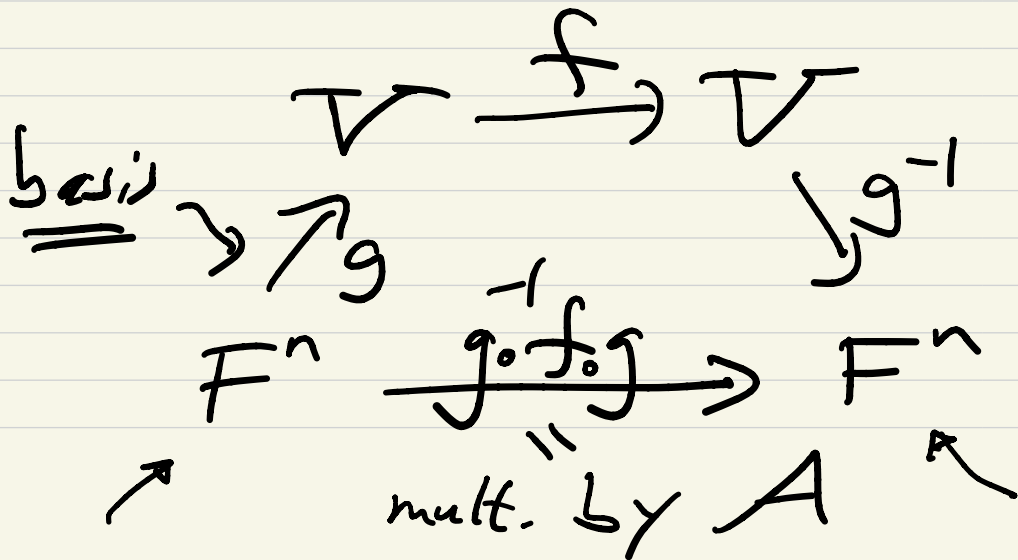 f
V V
basis g⁻¹
g
Fⁿ g⁻¹∘f∘g Fⁿ
=
mult. by A